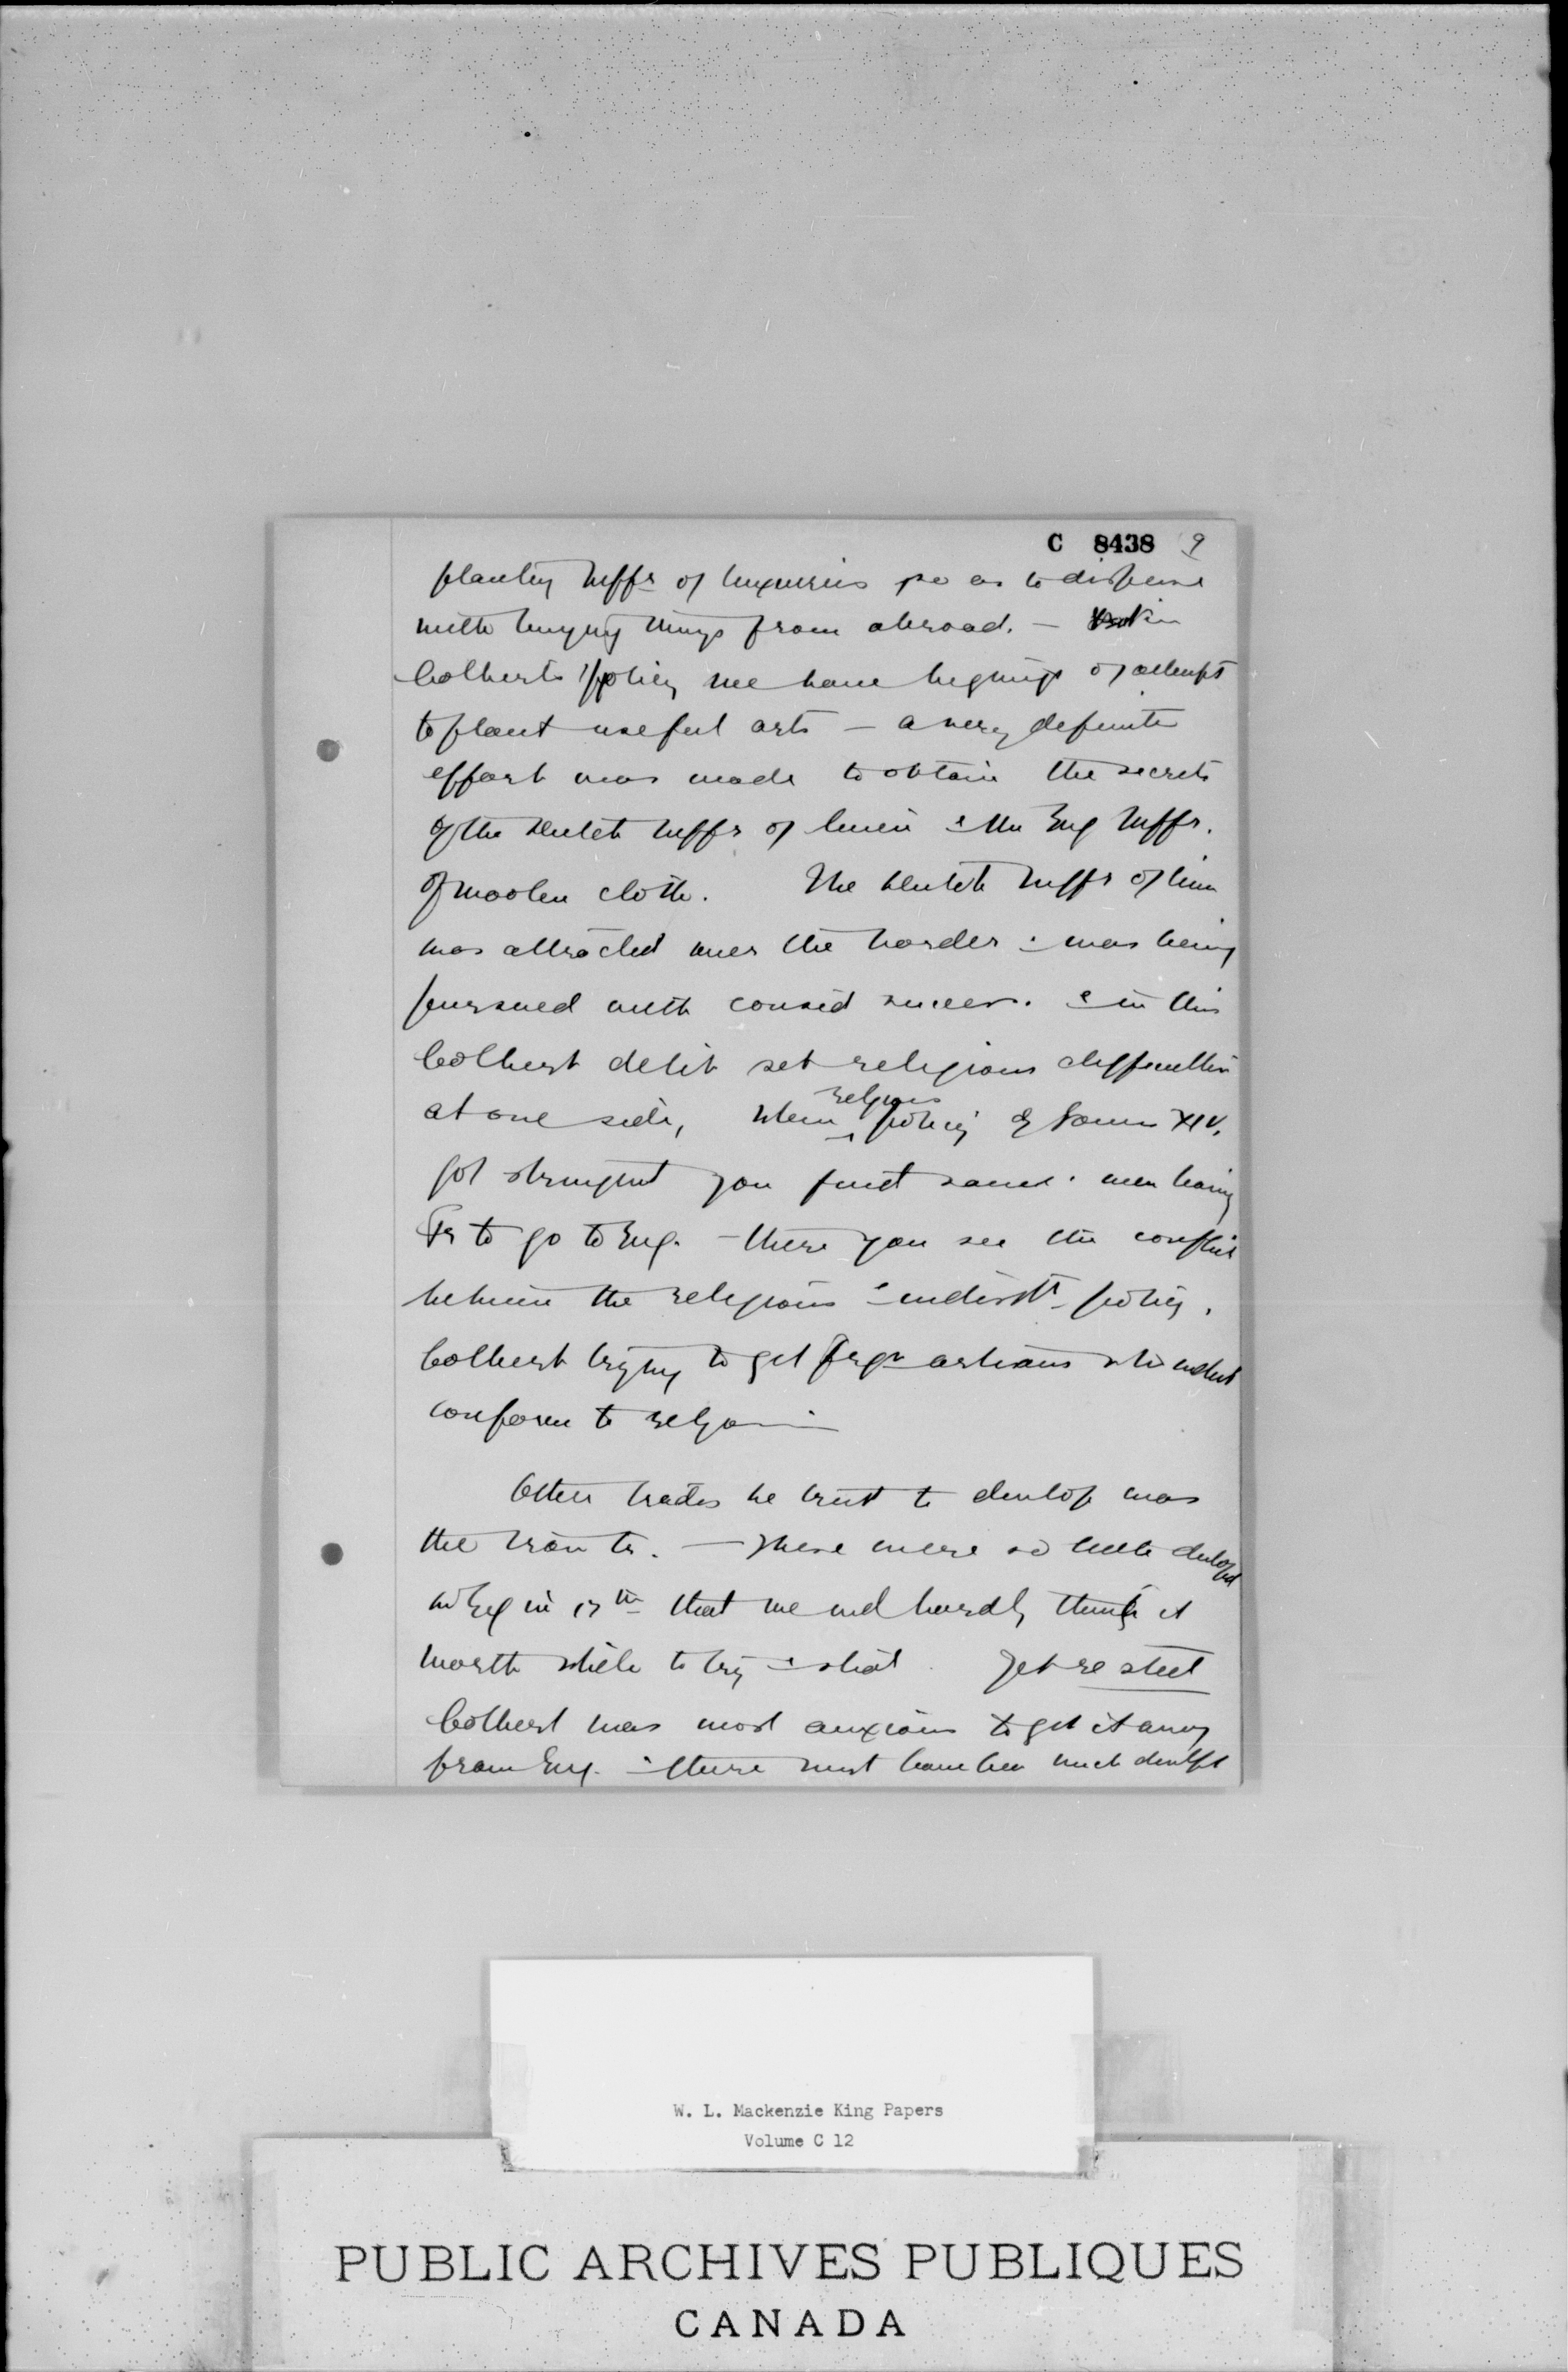 C 8438 9
planting mffs of luxuries so as to dispense
with buying things from abroad. — in
Colbert's policy we have beginnings of attempt
to plant useful arts — a very definite
effort was made to obtain the secrets
of the Dutch mffs of linen & the Eng mffr.
of woolen cloth. The Dutch mffs of linen
was attracted over the border & was being
pursued with consid success. & in this
Colbert delib set religious difficulties
at one side, when religious policy of Louis XIV,
got stringent you find same men leaving
Fr to go to Eng. — there you see the conflict
between the religious & indust policy.
Colbert trying to get forgn artisans who wdnt
conform to
Other trades he tried to develop was
the iron tr. — These were so little developd
in Eng in 17th that we wd hardly think it
worth while to try & Yet re steel
Colbert was most anxious to get it away
from Eng. & there must have been much developt
W. L. Mackenzie King Papers
Volume C 12
PUBLIC ARCHIVES PUBLIQUES
CANADA